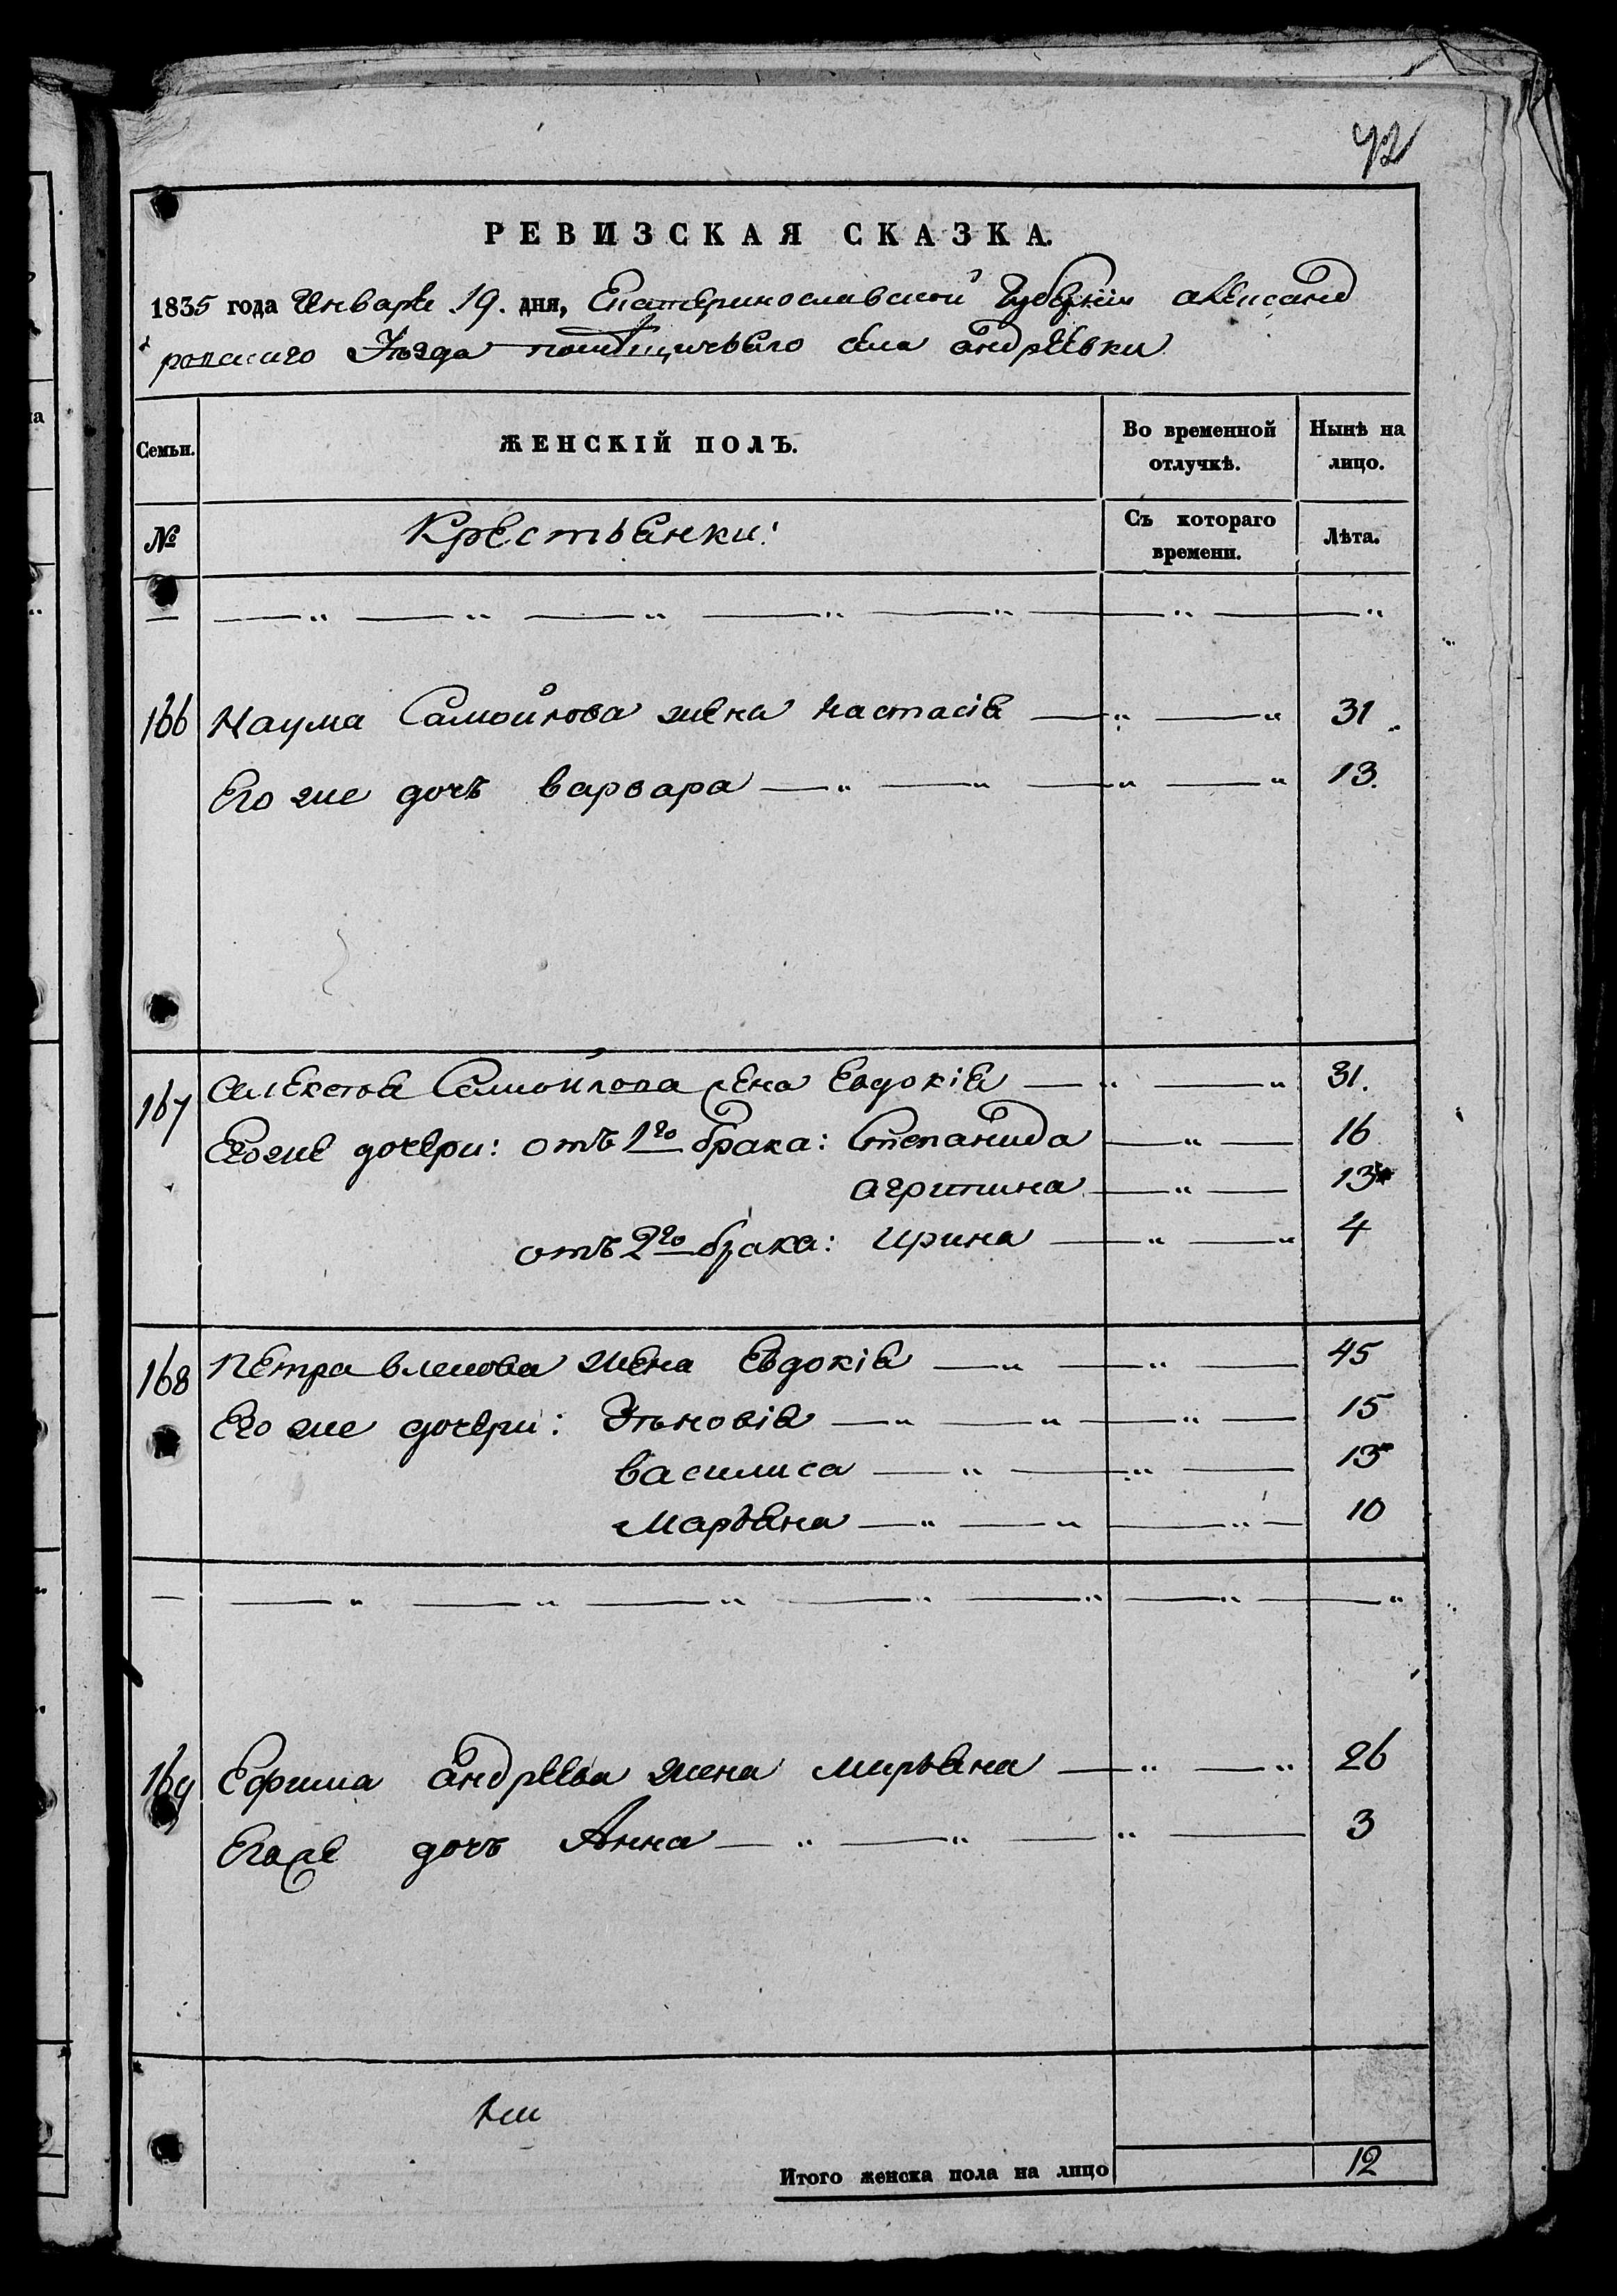 92
РЕВИЗСКАЯ СКАЗКА.
1835 года Января 19. дня, Екатеринославской Губерніи Александ
ровскаго Уѣзда помѣщичьяго села андреевки
Семьи. ЖЕНСКІЙ ПОЛЪ. Во временной отлучкѣ. Нынѣ на лицо.
№ Крестьянки: Съ котораго времени. Лѣта.
166 Наума Самойлова жена Настасія 31
Его же дочь варвара 13.
167 Алексея Самойлова жена Евдокія 31.
Его же дочери: отъ 1го брака: Степанида 16
агрипина 13
отъ 2го брака: Ирина 4
168 Петра жена Евдокія 45
Его же дочери: Зѣновія 15
Василиса 13
Марьяна 10
169 Ефима андреева жена марьяна 26
Егоже дочь Анна 3
Итого женска пола на лицо 12